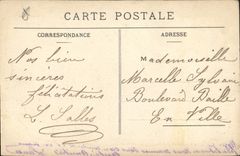 CARTE POSTALE
CORRESPONDANCE
ADRESSE
Nos bien
sinceres
félicitations
L. Salles
Mademoiselle
Marcelle Sylvain
Boulevard Baille
En Ville